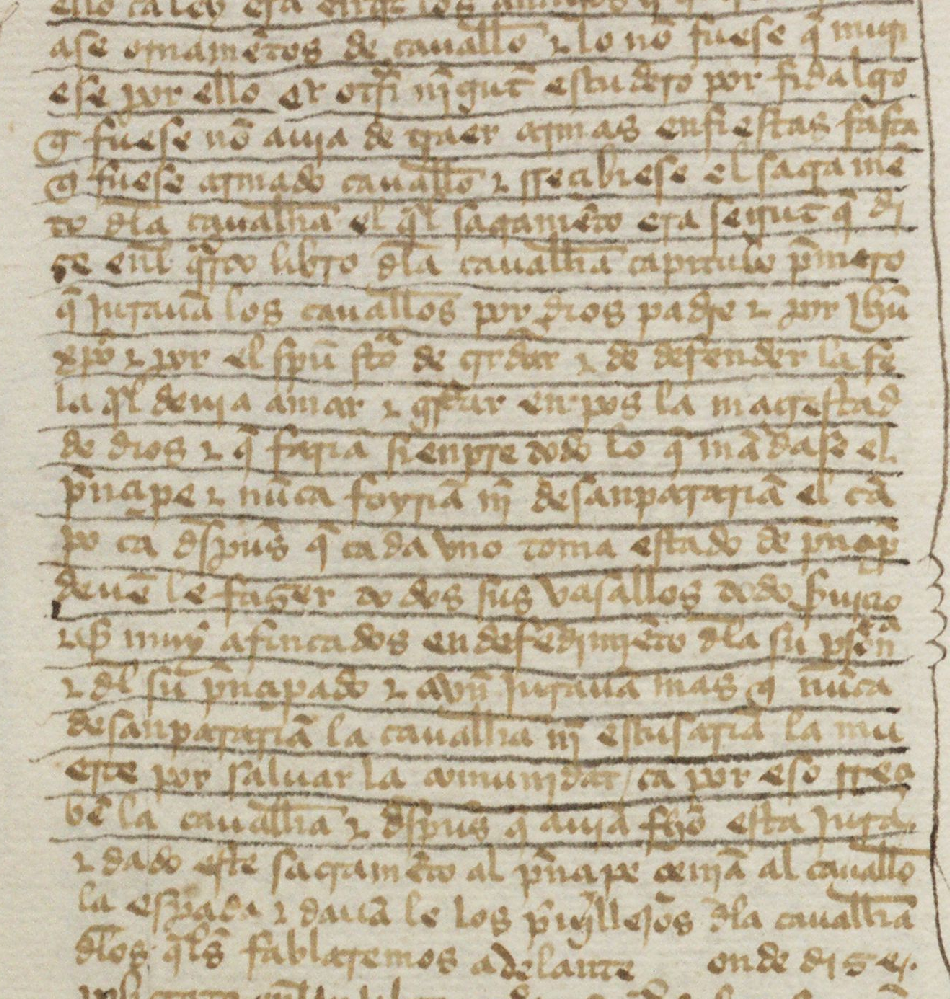 ase ornamẽtos de cauallo ⁊ lo nõ fuese q̃ muri
ese por ello et otsi nĩgut escudero por fidalgo
q̃ fuese nõ auia de traer armas enfiestas fasta
q̃ fuese armado cauallo ⁊ rreçibiese el sacramẽ
to dla cauallia el ql sacramẽto era segut q̃ di
ze enl qrto libro dla cauallia capitulo pmero
q̃ jurauã los caualleos por dios padre ⁊ por ihũ
xpõ ⁊ por el spũ sto de grdar ⁊ de defender la fe
la ql deuia amar ⁊ grdar enpos la magestad
de dios ⁊ q̃ fariã sienpre todo lo q̃ mãdase el
pnçipe ⁊ nũca foyriã nĩ desanparariã el cã
po ca dspus q̃ cada vno toma estado de pnçip
deuẽ le fazer todos sus vasallos todo suiçio
⁊ muy afincados en defedimiẽto dla su psõn
⁊ dl su pnçipado ⁊ avn jurauã mas q̃ nũca
desanparariã la cauallia nĩ escusariã la mu
erte por saluar la comunidat / ca por eso rreçi
bẽ la cauallia ⁊ dspus q̃ auiã fho esta jura
⁊ dado este sacramẽto al pnçipe çeniã al cauallo
la espada ⁊ dauã le los puillejos dla cauallia
dlos qls fablaremos adelante onde dize